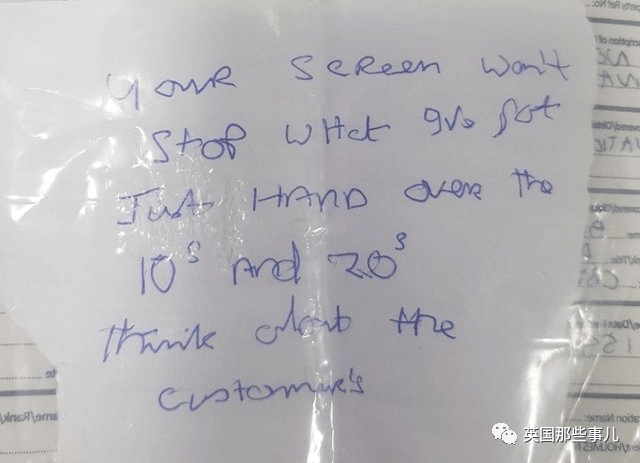 your screen won't
stop what ive got
Just HAND over the
10s and 20s
think about the
customer's
英国那些事儿